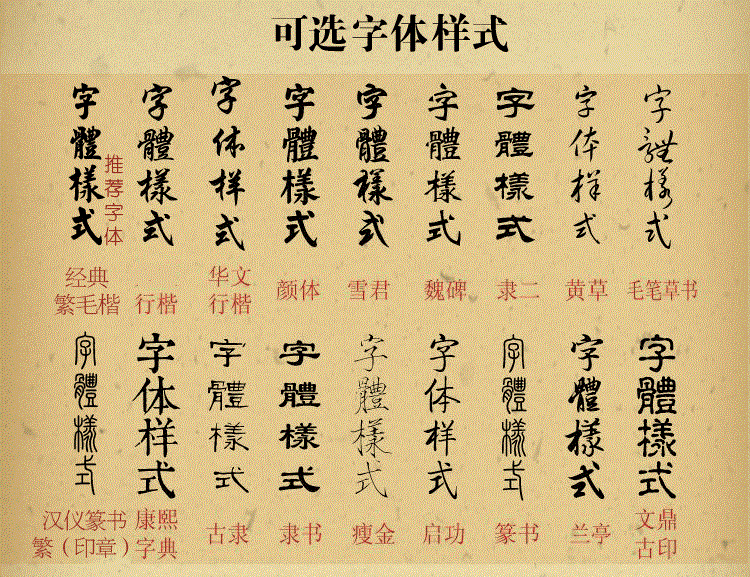 可选字体样式
字體樣式
字體樣式
字体样式
字體樣式
字體樣式
字體樣式
字體樣式
字体样式
字體樣式
推荐字体
经典
繁毛楷
行楷
华文
行楷
颜体
雪君
魏碑
隶二
黄草
毛笔草书
字體樣式
字体样式
字體樣式
字體樣式
字體樣式
字体样式
字體樣式
字體樣式
字體樣式
汉仪篆书
繁（印章）
康熙
字典
古隶
隶书
瘦金
启功
篆书
兰亭
文鼎
古印